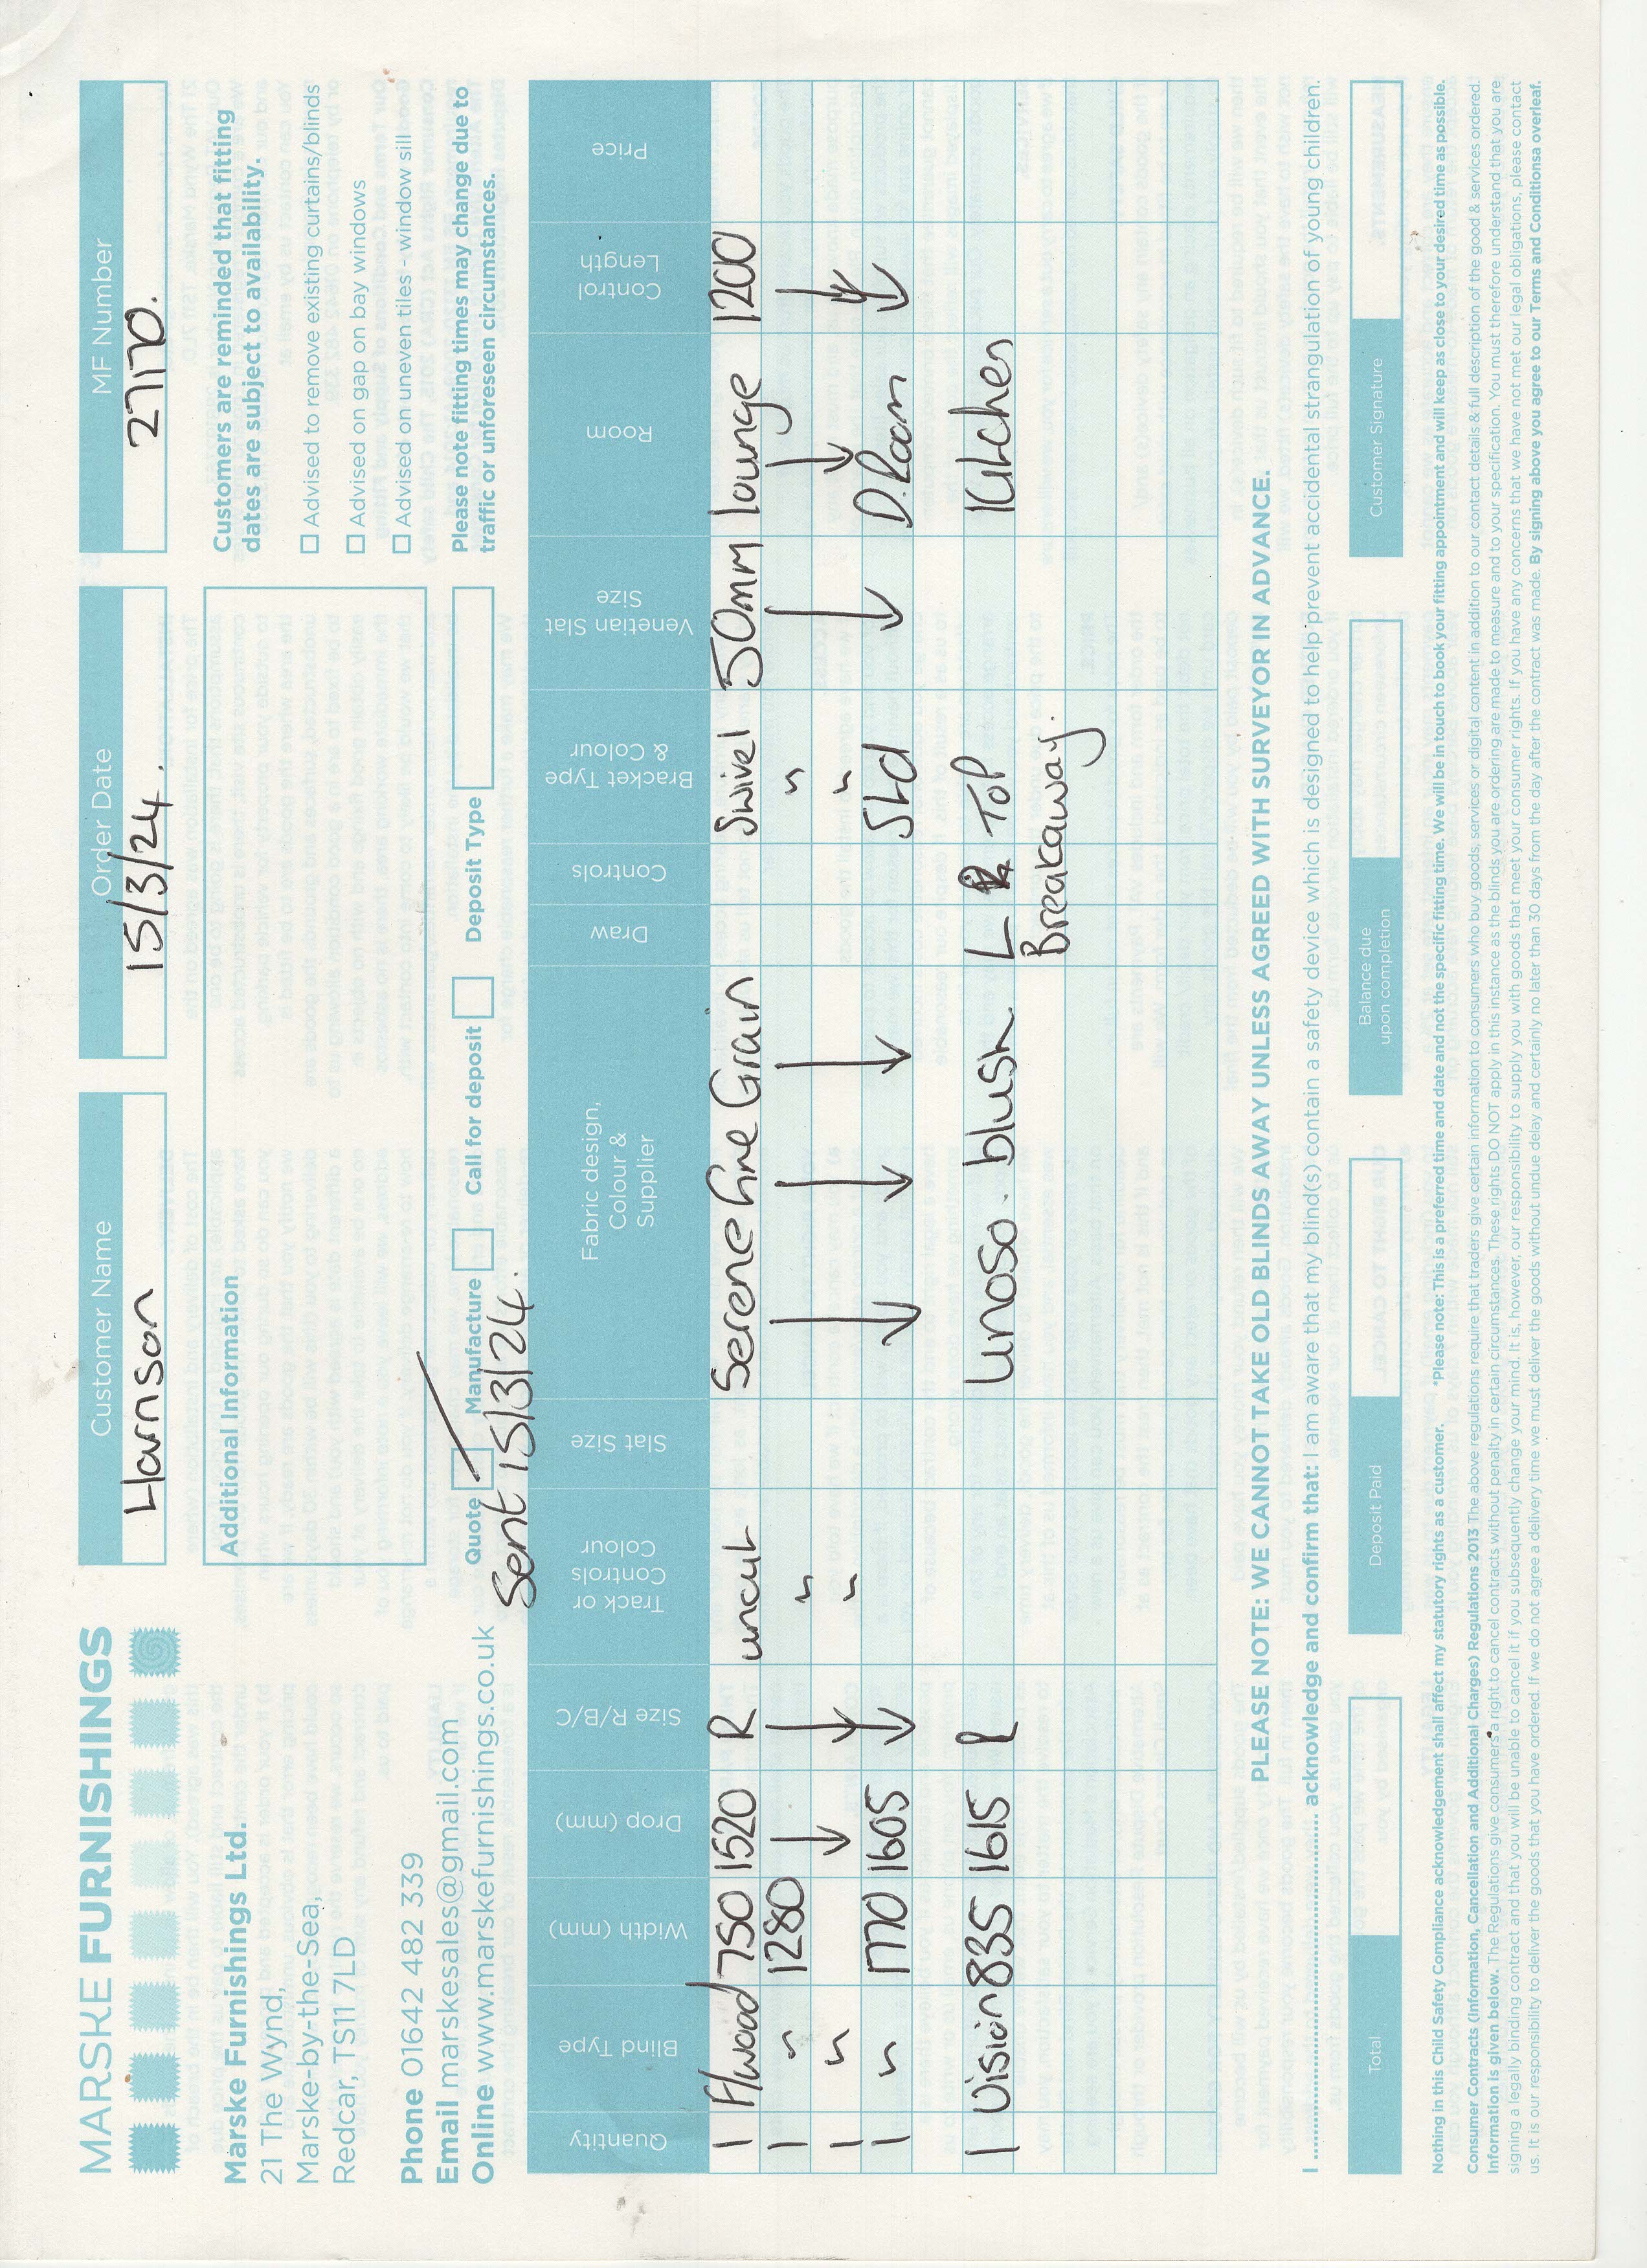 MARSKE FURNISHINGS
Marske Furnishings Ltd.
21 The Wynd,
Marske-by-the-Sea,
Redcar, TS11 7LD
Phone 01642 482 339
Email marskesales@gmail.com
Online www.marskefurnishings.co.uk
Customer Name
Harrison
Order Date
15/3/24.
MF Number
27170.
Additional Information
Customers are reminded that fitting
dates are subject to availability.
Advised to remove existing curtains/blinds
Advised on gap on bay windows
Advised on uneven tiles - window sill
Please note fitting times may change due to
traffic or unforeseen circumstances.
Quote Manufacture Call for deposit Deposit Type
Sent 15/3/24.
Quantity Blind Type Width (mm) Drop (mm) Size R/B/C Track or Controls Colour Slat Size Fabric design, Colour & Supplier Draw Controls Bracket Type & Colour Venetian Slat Size Room Control Length Price
1 F/wood 750 1520 R uncut Serene Fine Grain Swivel 50mm lounge 1200
1 " 1280 ↓ ↓ " ↓ ↓ ↓ " ↓ ↓ ↓
1 " " "
1 " 1770 1605 ↓ Std D.Room ↓
1 Vision 835 1615 R Linoso. blush L TOP Kitchen
Breakaway.
PLEASE NOTE: WE CANNOT TAKE OLD BLINDS AWAY UNLESS AGREED WITH SURVEYOR IN ADVANCE.
I ........................................ acknowledge and confirm that: I am aware that my blind(s) contain a safety device which is designed to help prevent accidental strangulation of young children.
Total Deposit Paid Balance due upon completion Customer Signature
Nothing in this Child Safety Compliance acknowledgement shall affect my statutory rights as a customer. *Please note: This is a preferred time and date and not the specific fitting time. We will be in touch to book your fitting appointment and will keep as close to your desired time as possible.
Consumer Contracts (Information, Cancellation and Additional Charges) Regulations 2013 The above regulations require that traders give certain information to consumers who buy goods, services or digital content in addition to our contact details & full description of the good & services ordered.
Information is given below. The Regulations give consumers a right to cancel contracts without penalty in certain circumstances. These rights DO NOT apply in this instance as the blinds you are ordering are made to measure and to your specification. You must therefore understand that you are
signing a legally binding contract and that you will be unable to cancel it if you subsequently change your mind. It is, however, our responsibility to supply you with goods that meet your consumer rights. If you have any concerns that we have not met our legal obligations, please contact
us. It is our responsibility to deliver the goods that you have ordered. If we do not agree a delivery time we must deliver the goods without undue delay and certainly no later than 30 days from the day after the contract was made. By signing above you agree to our Terms and Conditionsa overleaf.